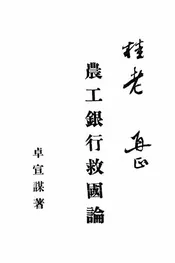 桂老 再正
農工銀行救國論
卓宣謀著